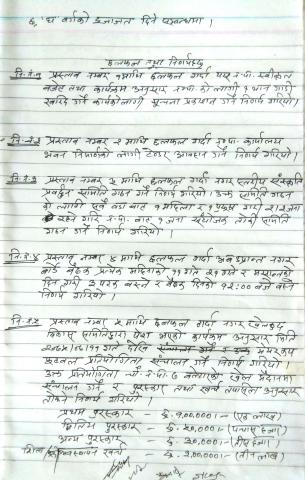 ६. घ वर्गको इजाजत दिने सम्बन्धमा ।
छलफल तथा निर्णयहरु
नि.नं.१ प्रस्ताव नम्बर १ माथि छलफल गर्दा यस न.पा. स्वीकृत
बजेट तथा कार्यक्रम अनुसार न.पा. को लागी १ थान गाडी
खरिद गर्ने कार्यको लागी सूचना प्रकाशन गर्ने निर्णय गरियो ।
नि.नं.२ प्रस्ताव नम्बर २ माथि छलफल गर्दा न.पा. कार्यालय
भवन निर्माणको लागी टेण्डर आव्हान गर्ने निर्णय गरियो ।
नि.नं.३ प्रस्ताव नम्बर ३ माथि छलफल गर्दा नगर स्तरीय संस्कृति
प्रवर्द्धन समिति गठन गर्ने निर्णय गरियो । उक्त समिति गठन
को लागि सबै वडा बाट १ महिला र १ पुरुष गरी २।२ जना
रहने गरि न.पा. बाट १ जना संयोजक तोकी समिति
गठन गर्ने निर्णय गरियो ।
नि.नं.४ प्रस्ताव नम्बर ४ माथि छलफल गर्दा अब उप्रान्त नगर
बोर्ड बैठक प्रत्येक महिनाको ११ गते २१ गते र मसान्तको
दिन गरी ३ पटक बस्ने र बैठक दिनको १२:०० बजे बस्ने
निर्णय गरियो ।
नि.नं.५ प्रस्ताव नम्बर ५ माथि छलफल गर्दा नगर खेलकुद
विकास समितिद्वारा पेश भएको कार्यक्रम अनुसार मिति
गते देखि संचालन गर्ने
प्रतियोगिता संचालन गर्ने निर्णय गरियो ।
उक्त प्रतियोगिता न.पा. ७ को खेल मैदानमा
संचालन गर्ने र पुरस्कार तथा खर्च अनुसार
तोक्ने निर्णय गरियो ।
प्रथम पुरस्कार - रु. १,००,०००।- (एक लाख)
द्वितिय पुरस्कार - रु. ५०,०००।- (पचास हजार)
अन्य पुरस्कार - रु.
व्यवस्थापन खर्च - रु.